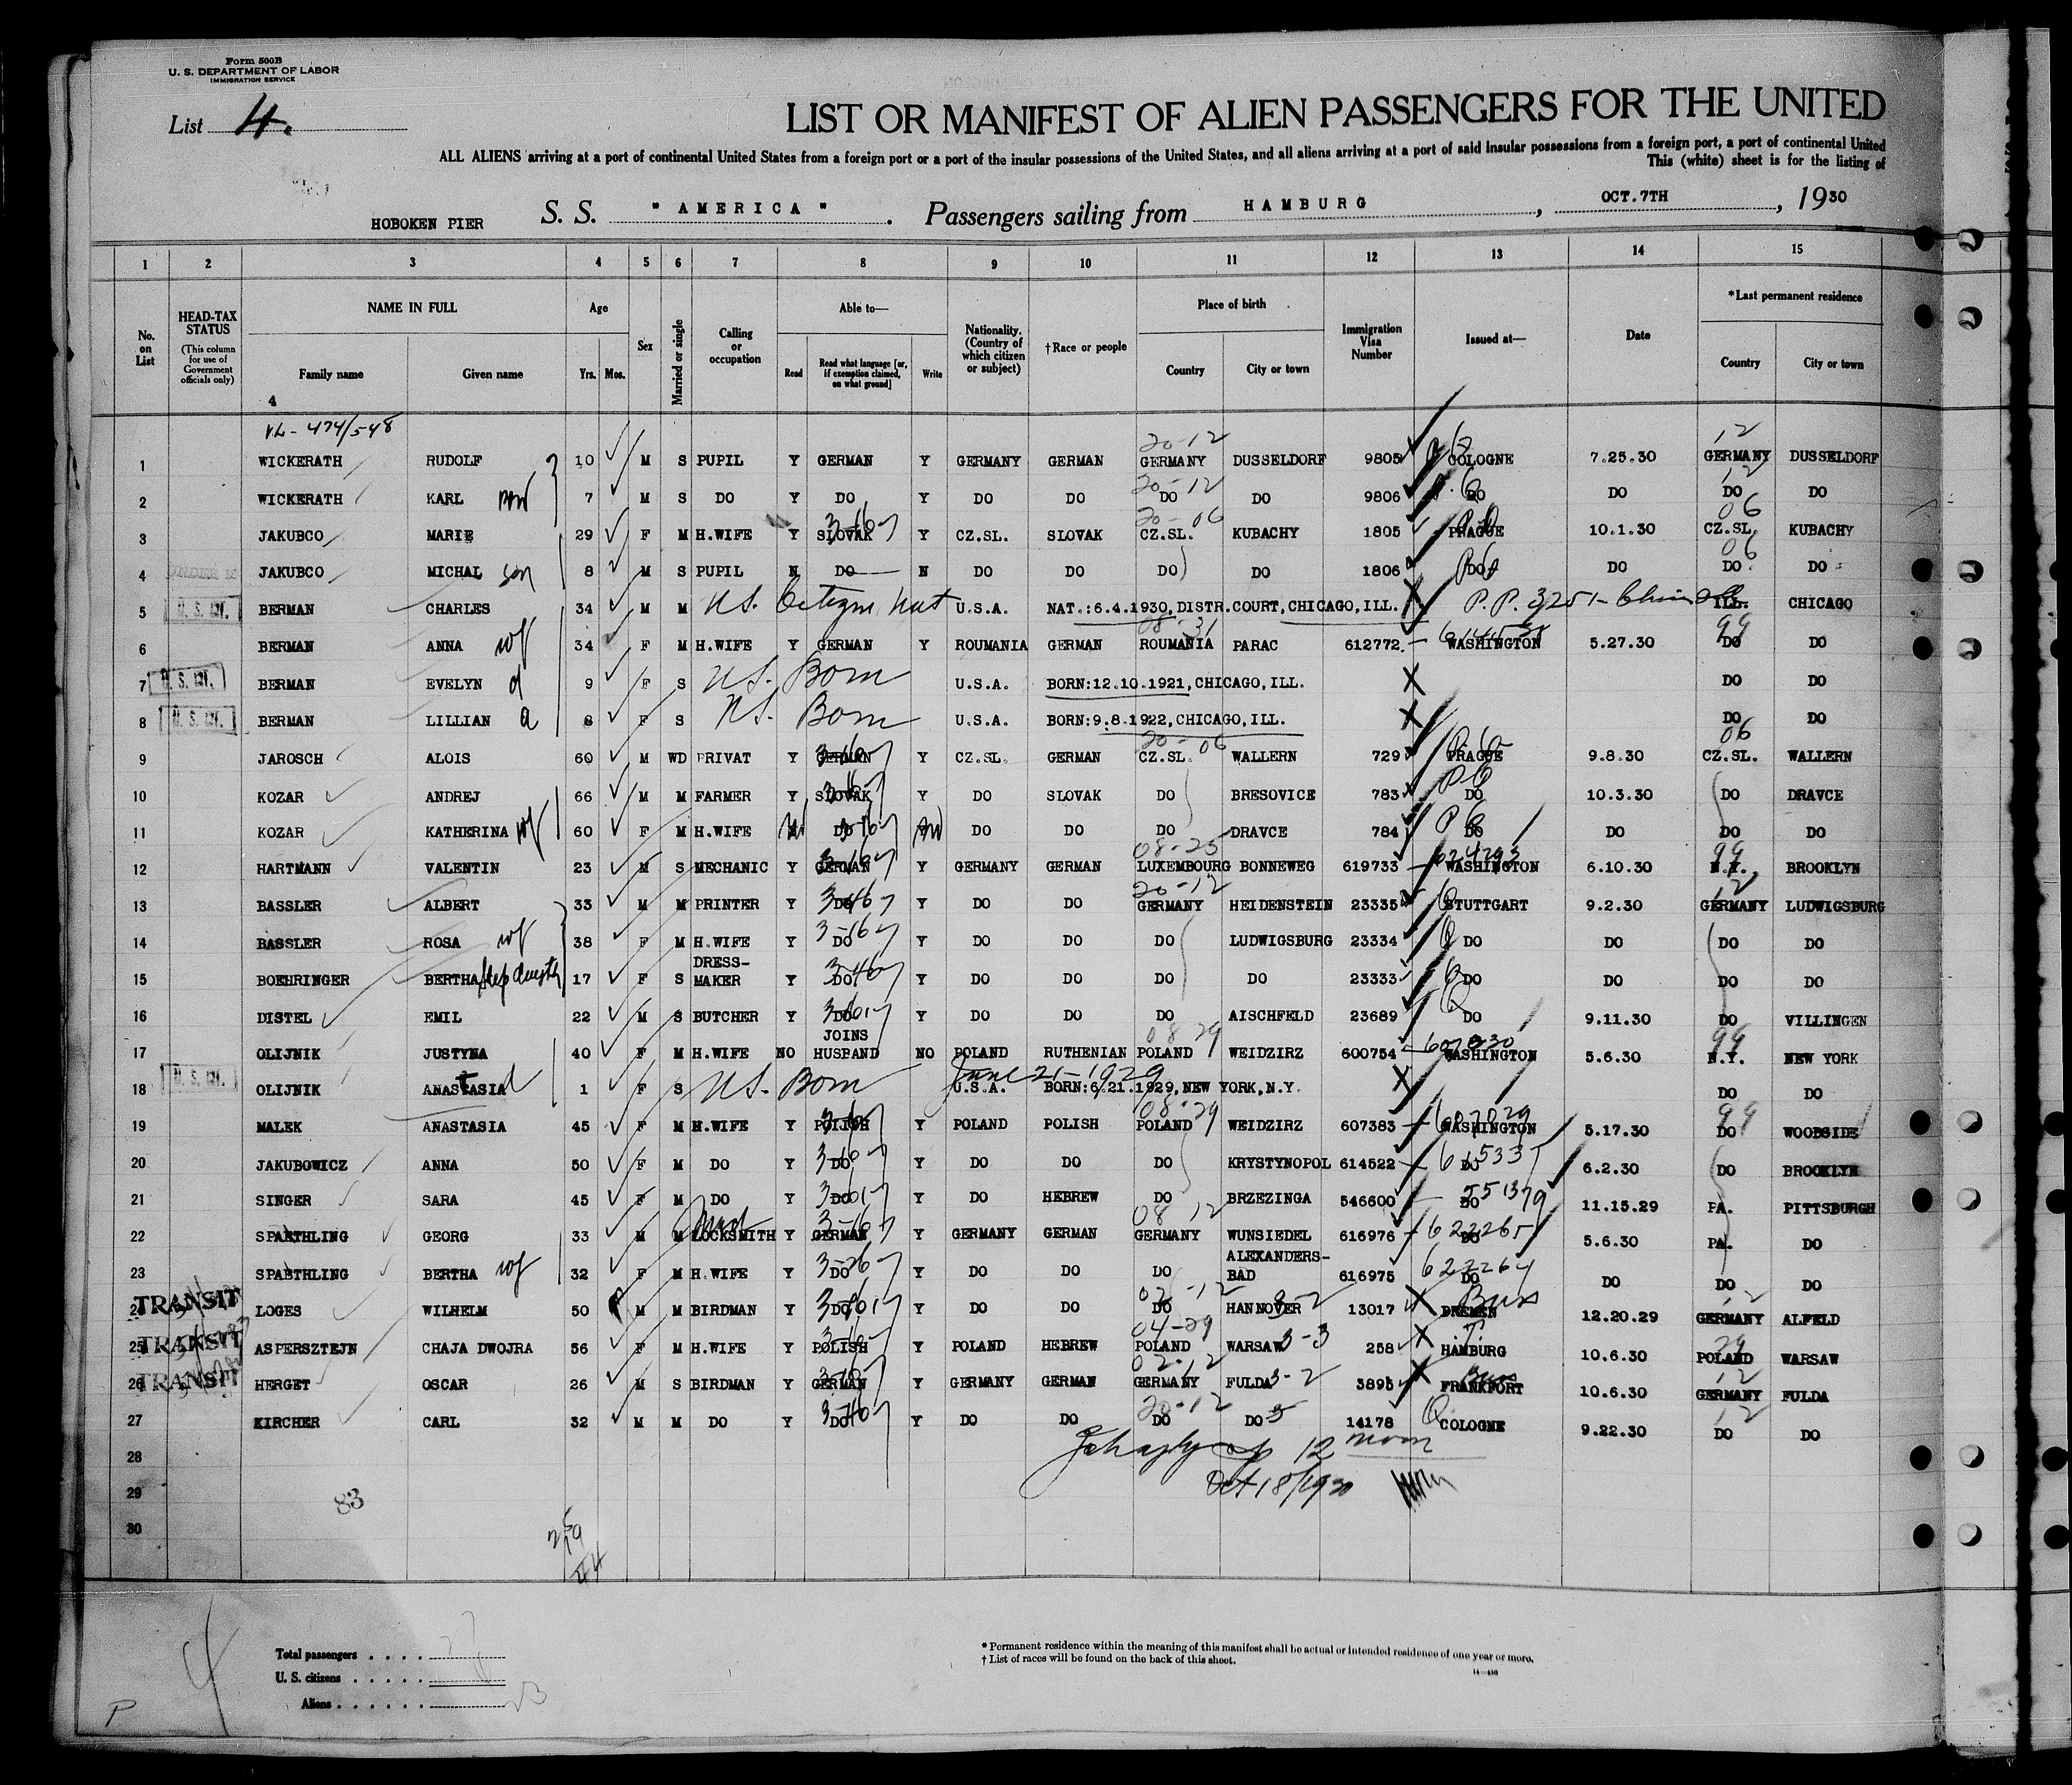 Form 500B
U. S. DEPARTMENT OF LABOR
IMMIGRATION SERVICE
List 4.
LIST OR MANIFEST OF ALIEN PASSENGERS FOR THE UNITED
ALL ALIENS arriving at a port of continental United States from a foreign port or a port of the insular possessions of the United States, and all aliens arriving at a port of said insular possessions from a foreign port, a port of continental United
This (white) sheet is for the listing of
HOBOKEN PIER S. S. "AMERICA". Passengers sailing from HAMBURG, OCT.7TH, 1930
1 2 3 4 5 6 7 8 9 10 11 12 13 14 15
No. on List
HEAD-TAX STATUS (This column for use of Government officials only)
NAME IN FULL Family name Given name
Age Yrs. Mos.
Sex
Married or single
Calling or occupation
Able to— Read Read what language [or, if exemption claimed, on what ground] Write
Nationality. (Country of which citizen or subject)
†Race or people
Place of birth Country City or town
Immigration Visa Number
Issued at—
Date
*Last permanent residence Country City or town
4
474/548
1 WICKERATH RUDOLF 10 M S PUPIL Y GERMAN Y GERMANY GERMAN 20-12 GERMANY DUSSELDORF 9805 COLOGNE 7.25.30 12 GERMANY DUSSELDORF
2 WICKERATH KARL 7 M S DO Y DO Y DO DO 20-12 DO DO 9806 DO DO 12 DO DO
3 JAKUBCO MARIE 29 F M H.WIFE Y SLOVAK Y CZ.SL. SLOVAK 20-06 CZ.SL. KUBACHY 1805 PRAGUE 10.1.30 06 CZ.SL. KUBACHY
4 JAKUBCO MICHAL son 8 M S PUPIL N DO N DO DO DO DO 1806 DO DO 06 DO DO
5 U. S. CIT. BERMAN CHARLES 34 M M U.S. Citizen Nat U.S.A. NAT.:6.4.1930,DISTR.COURT,CHICAGO,ILL. X P.P. 3251- ILL. CHICAGO
6 BERMAN ANNA wf 34 F M H.WIFE Y GERMAN Y ROUMANIA GERMAN 08-31 ROUMANIA PARAC 612772 WASHINGTON 5.27.30 99 DO DO
7 U. S. CIT. BERMAN EVELYN d 9 F S U.S. Born U.S.A. BORN:12.10.1921,CHICAGO,ILL. X DO DO
8 U. S. CIT. BERMAN LILLIAN d 8 F S U.S. Born U.S.A. BORN:9.8.1922,CHICAGO,ILL. X DO DO
9 JAROSCH ALOIS 60 M WD PRIVAT Y GERMAN Y CZ.SL. GERMAN 20-06 CZ.SL. WALLERN 729 PRAGUE 9.8.30 06 CZ.SL. WALLERN
10 KOZAR ANDREJ 66 M M FARMER Y SLOVAK Y DO SLOVAK DO BRESOVICE 783 DO 10.3.30 DO DRAVCE
11 KOZAR KATHERINA wf 60 F M H.WIFE DO DO DO DO DRAVCE 784 DO DO DO DO
12 HARTMANN VALENTIN 23 M S MECHANIC Y GERMAN Y GERMANY GERMAN 08-25 LUXEMBOURG BONNEWEG 619733 WASHINGTON 6.10.30 99 N.Y. BROOKLYN
13 BASSLER ALBERT 33 M M PRINTER Y DO Y DO DO 20-12 GERMANY HEIDENSTEIN 23335 STUTTGART 9.2.30 12 GERMANY LUDWIGSBURG
14 BASSLER ROSA wf 38 F M H.WIFE Y DO Y DO DO DO LUDWIGSBURG 23334 DO DO DO DO
15 BOEHRINGER BERTHA step daughter 17 F S DRESS-MAKER Y DO Y DO DO DO DO 23333 DO DO DO DO
16 DISTEL EMIL 22 M S BUTCHER Y DO Y DO DO DO AISCHFELD 23689 DO 9.11.30 DO VILLINGEN
17 OLIJNIK JUSTYNA 40 F M H.WIFE NO JOINS HUSBAND NO POLAND RUTHENIAN 08-29 POLAND WEIDZIRZ 600754 WASHINGTON 5.6.30 99 N.Y. NEW YORK
18 U. S. CIT. OLIJNIK ANASTASIA d 1 F S U.S. Born June 21-1929 U.S.A. BORN:6.21.1929,NEW YORK,N.Y. X DO DO
19 MALEK ANASTASIA 45 F M H.WIFE Y POLISH Y POLAND POLISH 08-29 POLAND WEIDZIRZ 607383 607029 WASHINGTON 5.17.30 99 DO WOODSIDE
20 JAKUBOWICZ ANNA 50 F M DO Y DO Y DO DO DO KRYSTYNOPOL 614522 DO 6.2.30 DO BROOKLYN
21 SINGER SARA 45 F M DO Y DO Y DO HEBREW DO BRZEZINGA 546600 551379 DO 11.15.29 PA. PITTSBURGH
22 SPAETHLING GEORG 33 M M LOCKSMITH Y GERMAN Y GERMANY GERMAN 08 12 GERMANY WUNSIEDEL 616976 622265 DO 5.6.30 PA. DO
23 SPAETHLING BERTHA wf 32 F M H.WIFE Y DO Y DO DO DO ALEXANDERS-BAD 616975 622264 DO DO DO DO
24 TRANSIT LOGES WILHELM 50 M M BIRDMAN Y DO Y DO DO 02-12 DO HANNOVER 3-2 13017 X BREMEN 12.20.29 GERMANY ALFELD
25 TRANSIT ASPERSZTEJN CHAJA DWOJRA 56 F M H.WIFE Y POLISH Y POLAND HEBREW 04-29 POLAND WARSAW 3-3 258 X HAMBURG 10.6.30 29 POLAND WARSAW
26 TRANSIT HERGET OSCAR 26 M S BIRDMAN Y GERMAN Y GERMANY GERMAN 02-12 GERMANY FULDA 3-2 3895 X FRANKFORT 10.6.30 12 GERMANY FULDA
27 KIRCHER CARL 32 M M DO Y DO Y DO DO 20-12 DO DO 14178 COLOGNE 9.22.30 12 DO DO
28 12 noon
29 83 Oct 18/1930
30
4
Total passengers
U. S. citizens
Aliens 23
P
* Permanent residence within the meaning of this manifest shall be actual or intended residence of one year or more.
† List of races will be found on the back of this sheet.